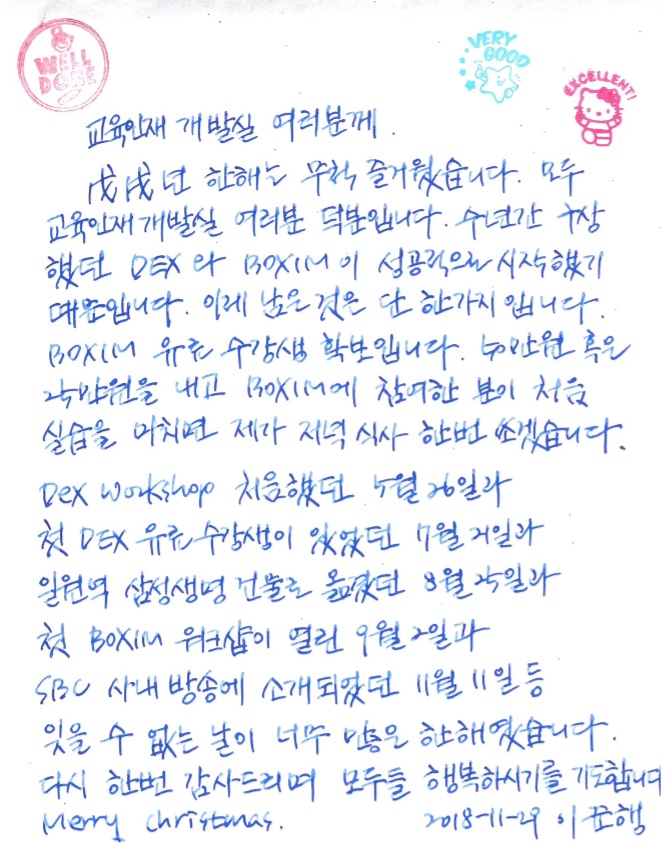 WELL DONE
VERY GOOD
EXCELLENT!
교육인재 개발실 여러분께.
戊戌년 한해는 무척 즐거웠습니다. 모두
교육인재개발실 여러분 덕분입니다. 수년간 구상
했던 DEX 와 BOXIM이 성공적으로 시작했기
때문입니다. 이제 남은 것은 단 한가지 입니다.
BOXIM 유료 수강생 확보입니다. 50만원 혹은
25만원을 내고 BOXIM에 참여한 분이 처음
실습을 마치면 제가 저녁 식사 한번 쏘겠습니다.
Dex workshop 처음했던 5월 26일과
첫 DEX 유료 수강생이 있었던 7월 21일과
일원역 삼성생명 건물로 옮겼던 8월 25일과
첫 BOXIM 워크샵이 열린 9월 2일과
SBC 사내 방송에 소개되었던 11월 11일 등
잊을 수 없는 날이 너무 많은 한해였습니다.
다시 한번 감사드리며 모두들 행복하시기를 기도합니다
Merry christmas. 2018-11-29 이준행